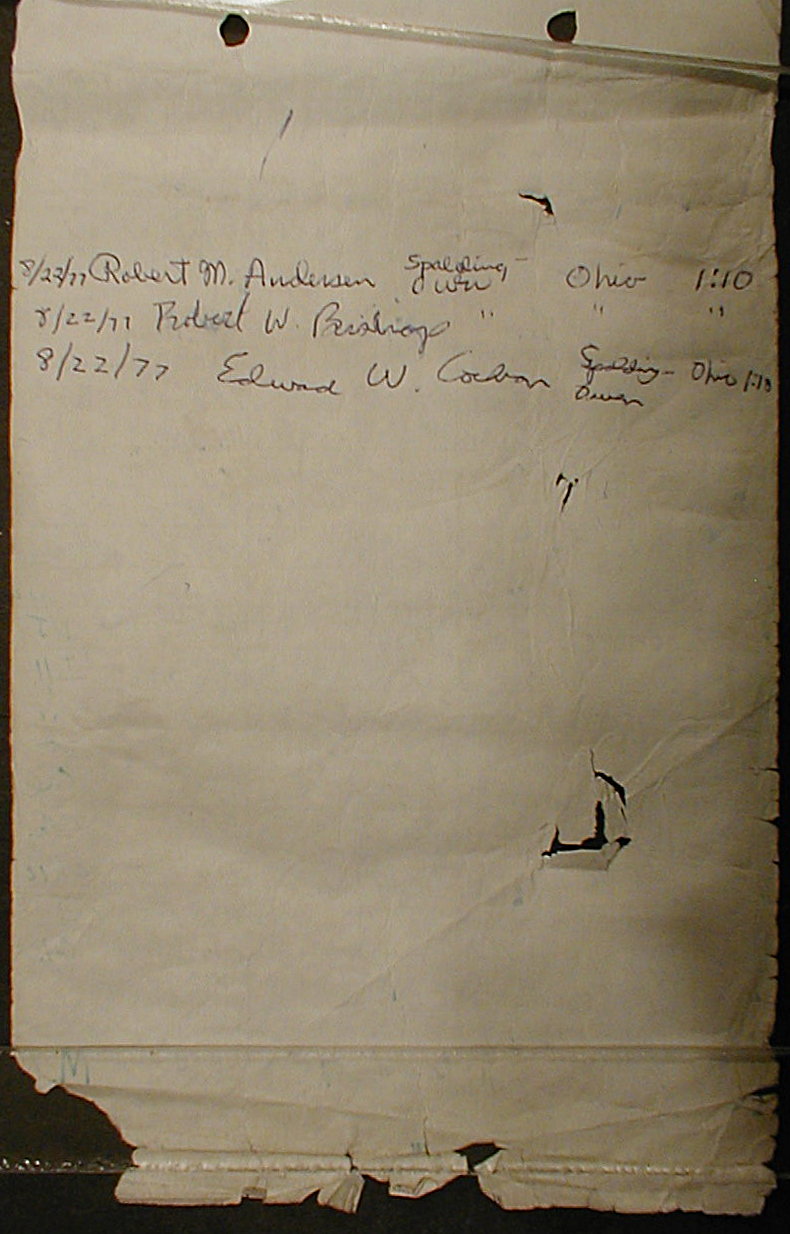 8/22/77 Robert M. Andersen Spalding - Owen Ohio 1:10
8/22/77 Robert W. " " "
8/22/77 Edward W. Spalding - Owen Ohio 1:10